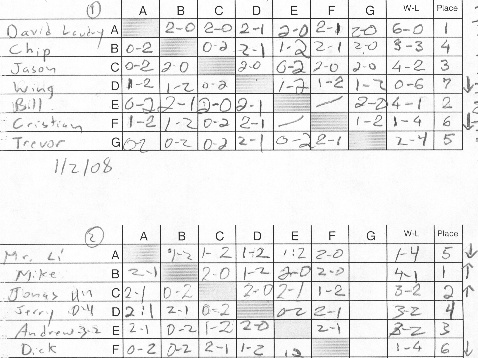 1 A B C D E F G W-L Place
David A 2-0 2-0 2-1 2-0 2-1 2-0 6-0 1
Chip B 0-2 0-2 2-1 1-2 2-1 2-0 3-3 4
Jason C 0-2 2-0 2-0 0-2 2-0 2-0 4-2 3
Wing D 1-2 1-2 0-2 1-2 1-2 1-2 0-6 7 ↓
Bill E 0-2 2-1 2-0 2-1 / 2-0 4-1 2
Cristian F 1-2 1-2 0-2 1-2 / 1-2 1-4 6 ↓
Trevor G 0-2 0-2 0-2 2-1 0-2 2-1 2-4 5
1/2/08
2 A B C D E F G W-L Place
Mr. Li A 1-2 1-2 1-2 1-2 2-0 1-4 5 ↓
Mike B 2-1 2-0 1-2 2-0 2-0 4-1 1 ↑
Jonas C 2-1 0-2 2-0 2-1 1-2 3-2 2 ↑
Jerry D 2-1 2-1 0-2 0-2 2-1 3-2 4
Andrew E 2-1 0-2 1-2 2-0 2-1 3-2 3
Dick F 0-2 0-2 2-1 1-2 1-2 1-4 6 ↓